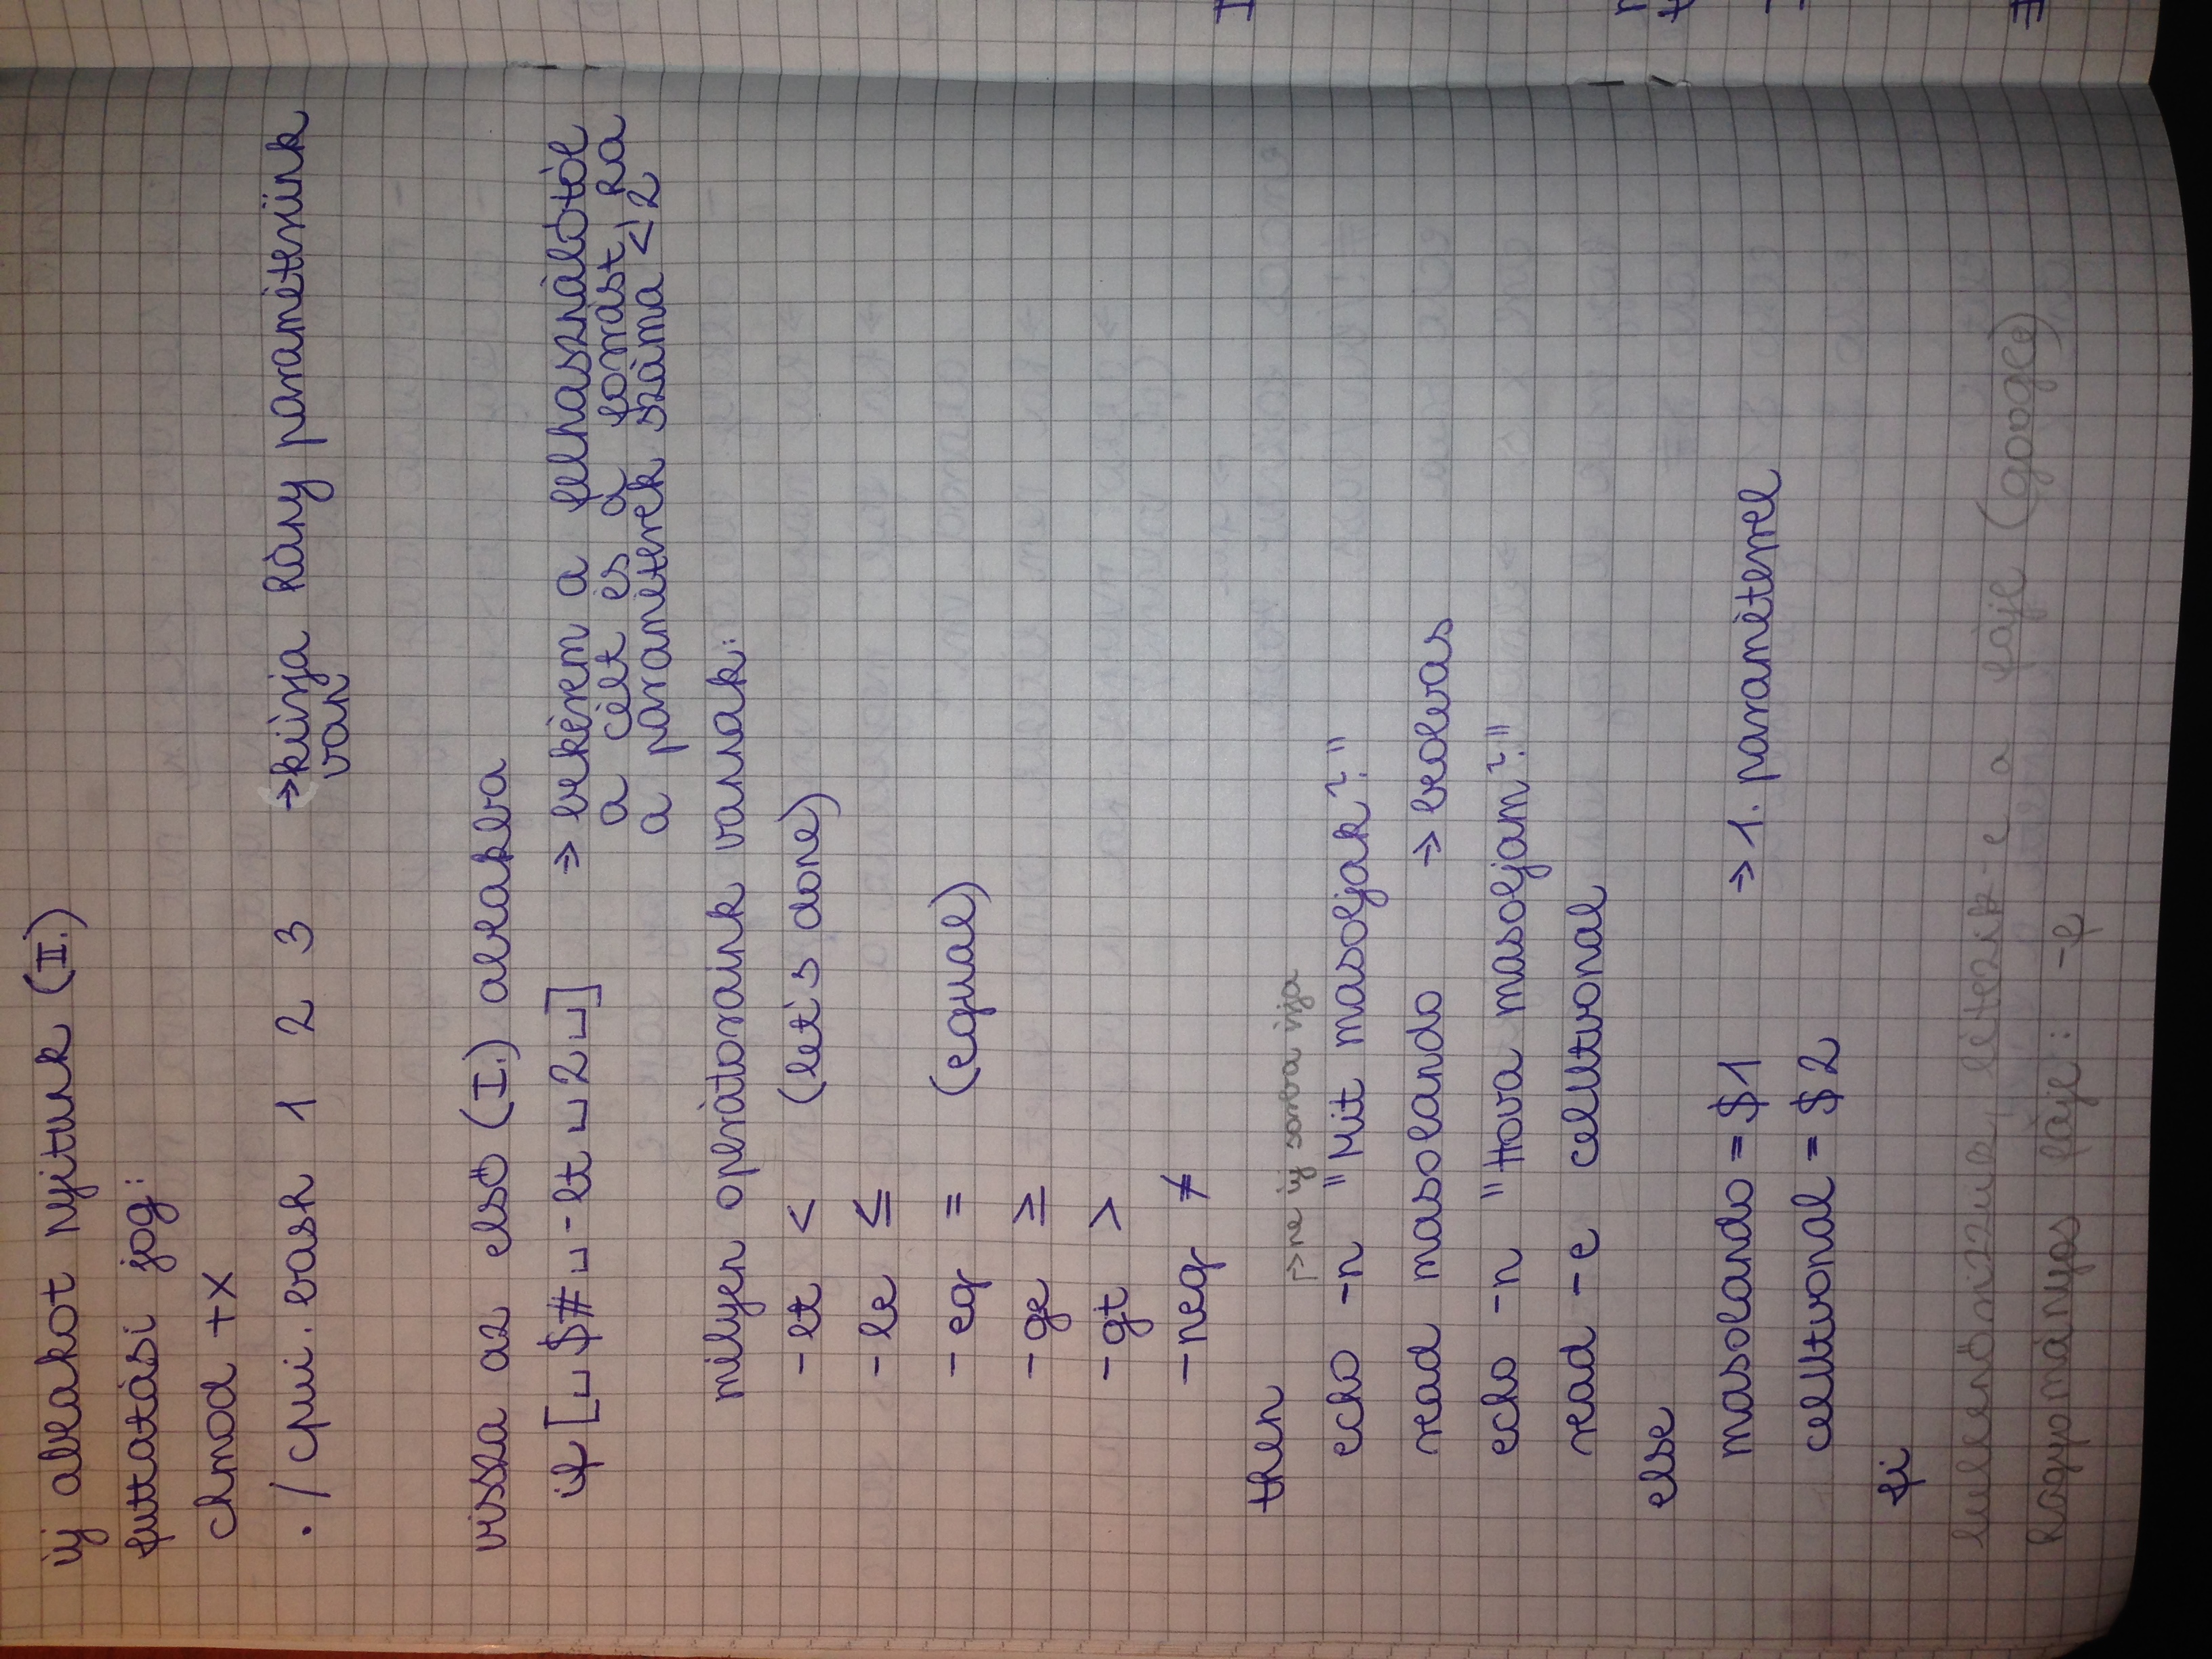 új ablakot nyitunk (II.)
futtatási jog:
chmod +x
./cpui.bash 1 2 3 → kiírja hány paraméterünk
van
vissza az első (I.) ablakba
if [␣$#␣-lt␣2␣] → bekérem a felhasználótól
a célt és a forrást, ha
a paraméterek száma < 2
milyen operátoraink vannak:
-lt < (let's done)
-le ≤
-eq = (equal)
-ge ≥
-gt >
-neq ≠
then
→ ne új sorba írja
echo -n "Mit masoljak?"
read masolando → beolvas
echo -n "Hova masoljam?"
read -e celUtvonal
else
masolando = $1 → 1. paraméterrel
celUtvonal = $2
fi
létezik-e a fájl (google)
hagyományos fájl: -f